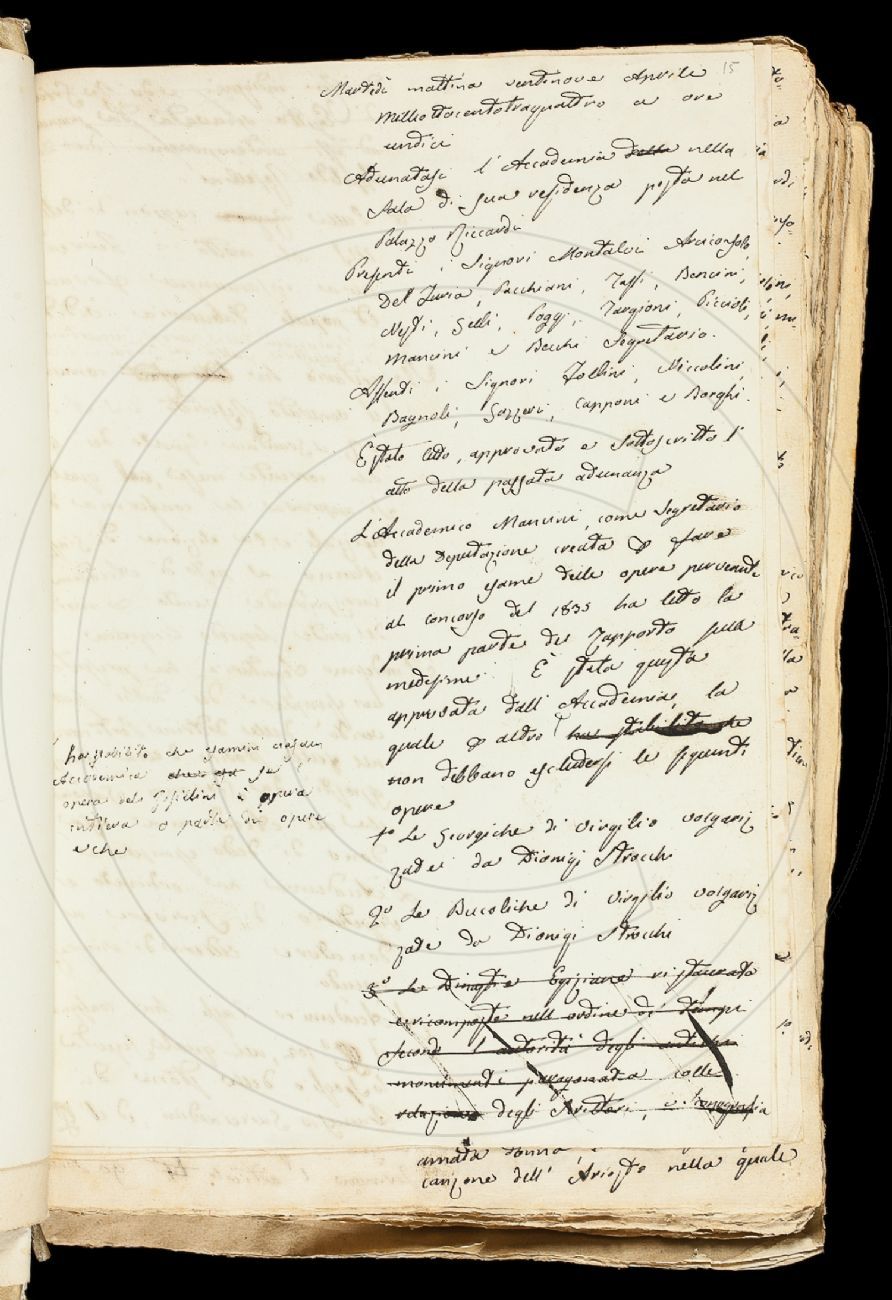 15
Martedì mattina ventinove Aprile
milleottocentotraquattro a ore
undici
Adunatasi l'Accademia della nella
Sala di sua residenza posta nel
Palazzo Riccardi
Presenti i Signori Montalvi Arciconsolo,
Del Furia, Pacchiani, Tassi, Bencini,
Nesti, Gelli, Poggi, Targioni, Piccioli,
Mancini e Becchi Segretario.
Assenti i Signori Zollini, Niccolini,
Bagnoli, Gazzeri, Capponi e Borghi.
È stato letto, approvato e sottoscritto l'
atto della passata adunanza
L'Accademico Mancini, come Segretario
della Deputazione creata p fare
il primo esame delle opere pervenute
al concorso del 1835 ha letto la
prima parte del Rapporto sulle
medesime. È stata questa
approvata dall'Accademia, la
quale p altro ha stabilito che
non debbano escludersi le seguenti
opere
ha stabilito che esamini ciascun
Accademico che se l'
opera del è opera
intiera o parte di opera
e che
1º Le Georgiche di Virgilio volgariz
zate da Dionigi Strocchi
2º Le Bucoliche di Virgilio volgariz
zate da Dionigi Strocchi
3º Le Dinastie Egiziane ristaurate
e ricomposte nell'ordine di tempi
second l'autorità degli antichi
monumenti paragonata colle
relazione degli Scrittori, e Iconografia
amata donna
canzone dell'Ariosto nella quale